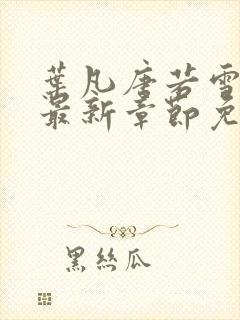 葉凡唐若雪
最新章節免
黑絲瓜